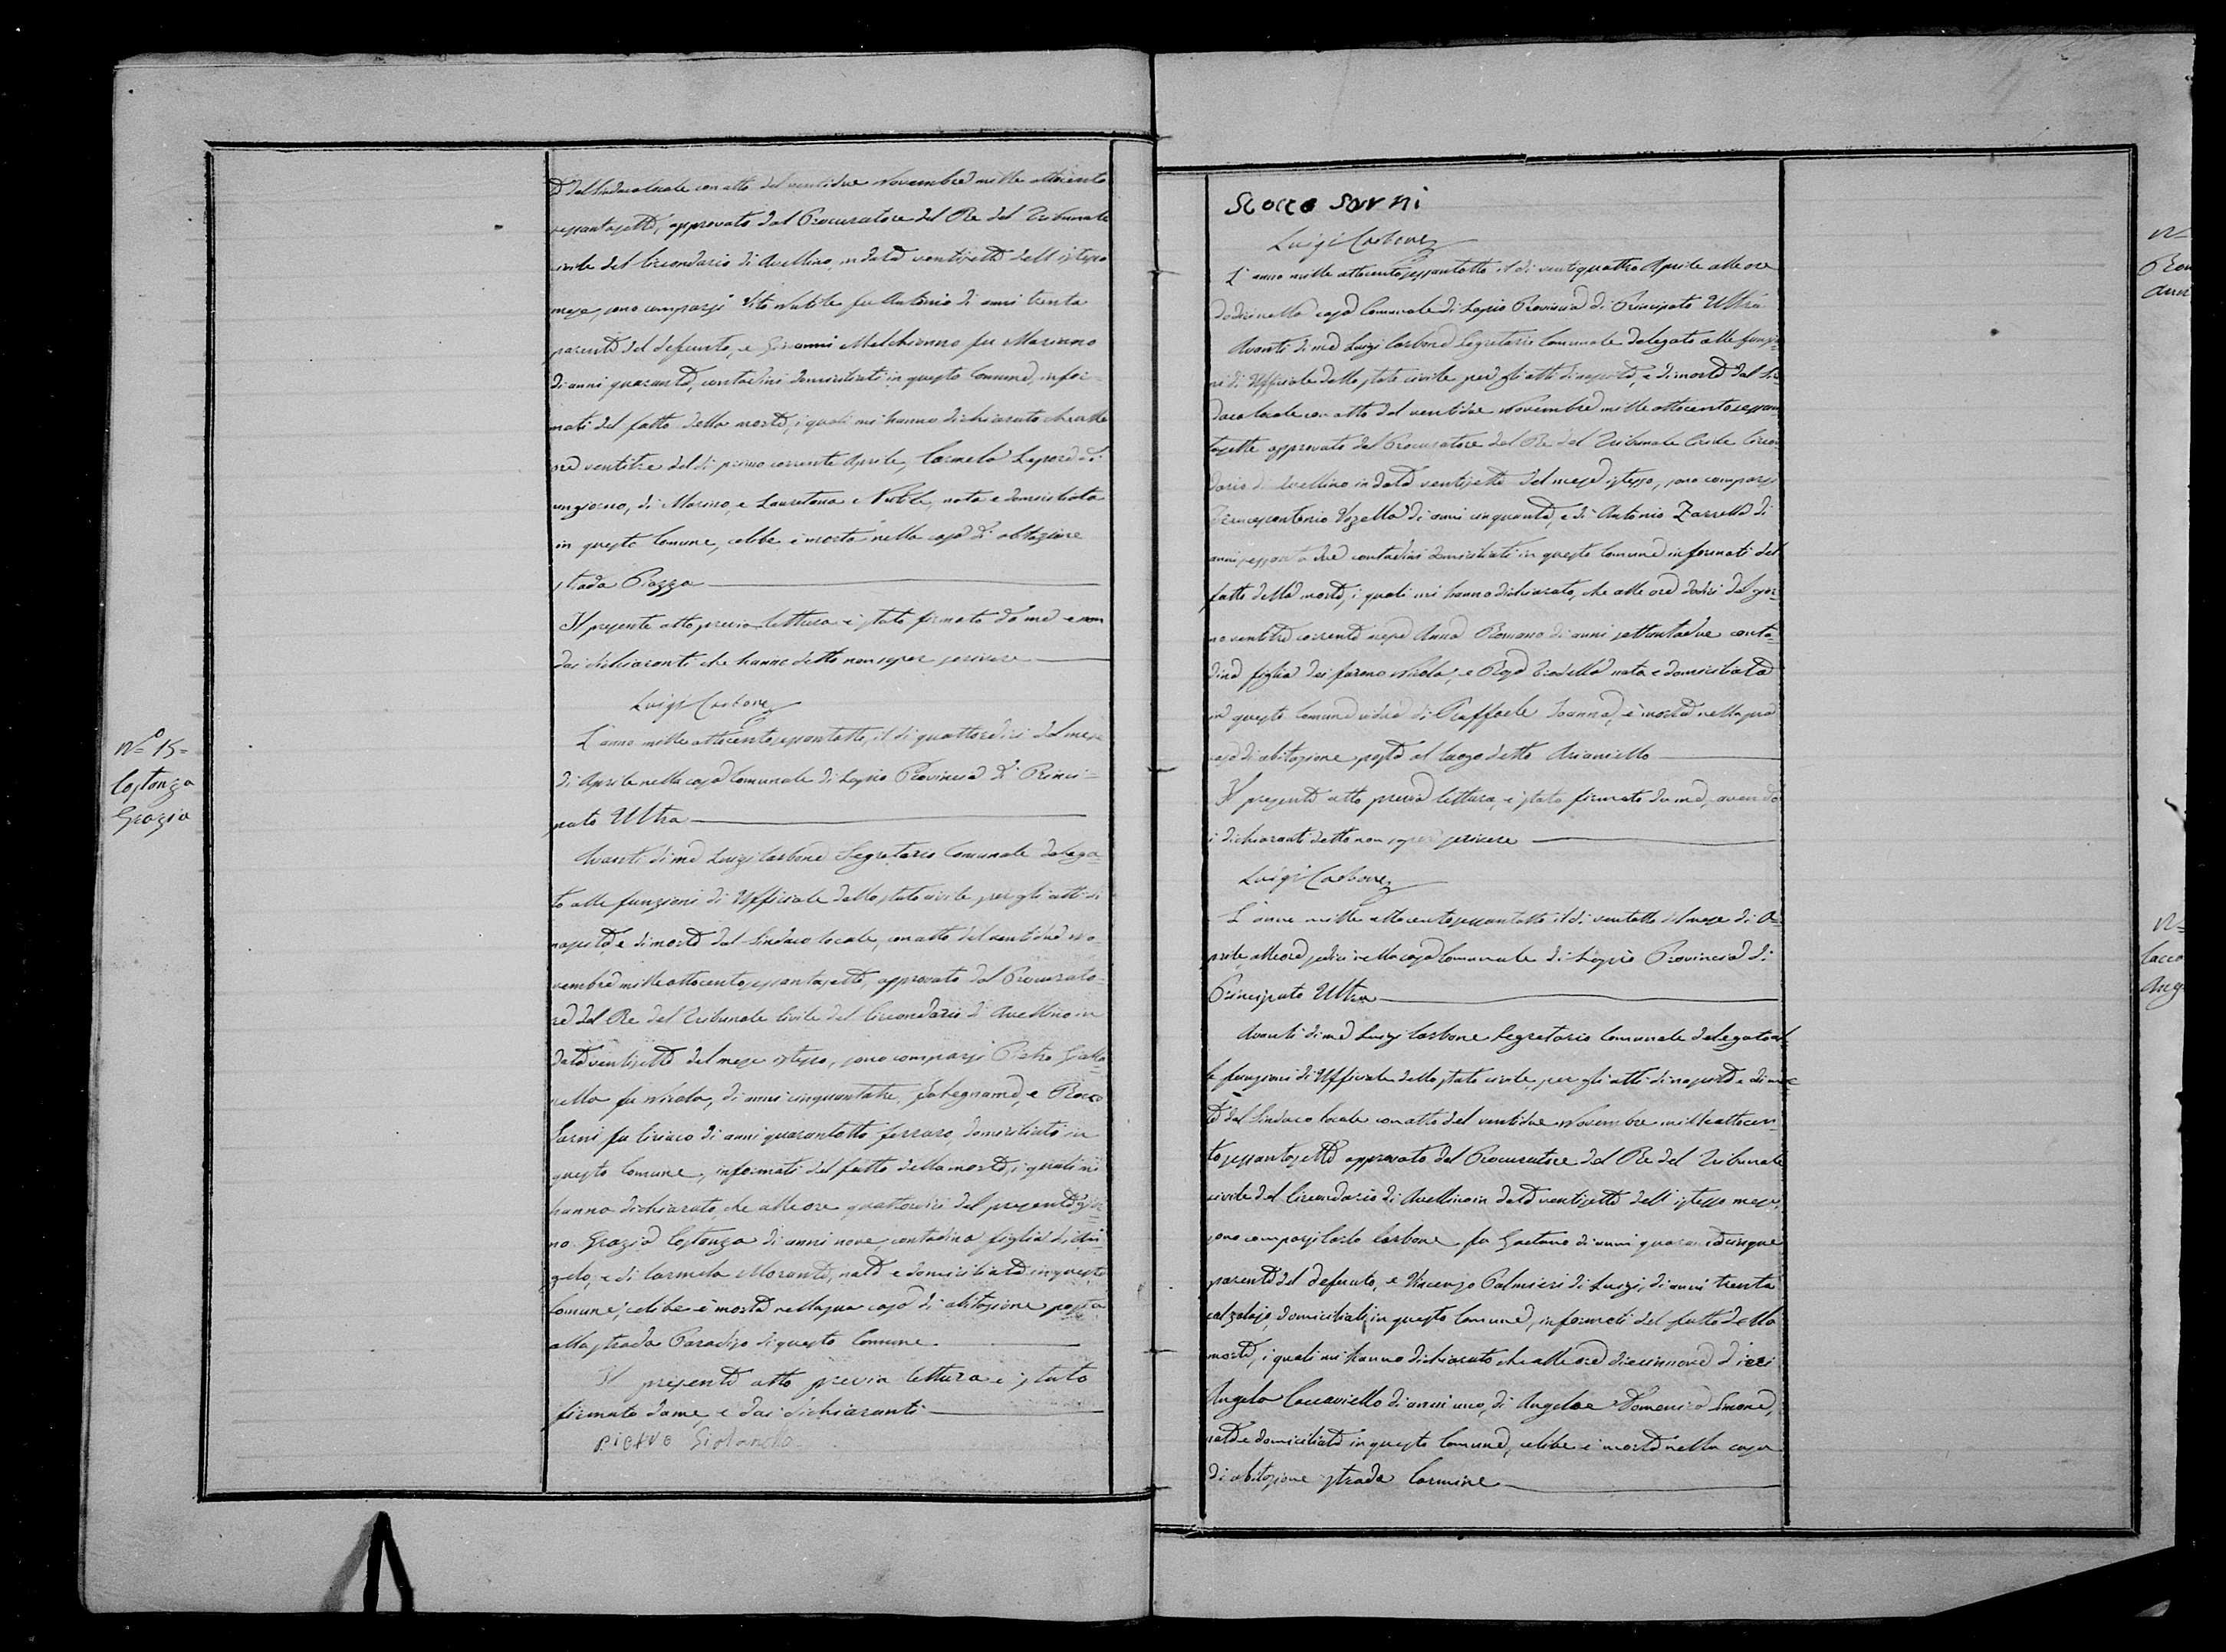 te dal Sindaco locale con atto del ventidue Novembre mille ottocento
sessantasette, approvato dal Procuratore del Re del Tribunale
civile del Circondario di Avellino, in data ventisette dell'istesso
mese, sono comparsi Vito Nubile fu Antonio di anni trenta
parente del defunto, e Giovanni Melchionno fu Mariano
di anni quaranta, contadini domiciliati in questo Comune, infor=
mati del fatto della morte, i quali mi hanno dichiarato che alle
ore ventitre del dì primo corrente Aprile, Carmela Lepore di
un giorno, di Marino, e Lauretana Nubile, nata e domiciliata
in questo Comune, celibe è morta nella casa di abitazione
strada Piazza
Il presente atto previa lettura è stato firmato da me e non
dai dichiaranti che hanno detto non saper scrivere
Luigi Carbone
N.º 15=
Costanza
Grazia
L'anno mille ottocentosessantotto, il dì quattordici del mese
di Aprile nella casa Comunale di Lapio Provincia di Princi=
pato Ultra
Avanti di me Luigi Carbone Segretario Comunale delega=
to alle funzioni di Uffiziale dello stato civile per gli atti di
nascite, e di morte dal Sindaco locale, con atto del ventidue No=
vembre mille ottocentosessantasette, approvato dal Procurato=
re del Re del Tribunale Civile del Circondario di Avellino in
data ventisette del mese istesso, sono comparsi Pietro
fu Nicola, di anni cinquantatre, falegname, e Rocco
Sarni fu Ciriaco di anni quarantotto ferraro, domiciliati in
questo Comune, informati del fatto della morte, i quali mi
hanno dichiarato, che alle ore quattordici del presente gior=
no Grazia Costanza di anni nove, contadina figlia di An=
gelo, e di Carmela Morante, nata e domiciliata in questo
Comune, celibe è morta nella sua casa di abitazione posta
alla strada Paradiso di questo Comune
Il presente atto previa lettura è stato
firmato da me, e dai dichiaranti
Pietro
Rocco Sarni
Luigi Carbone
N=
Rom
Ann
L'anno mille ottocentosessantotto il dì ventiquattro Aprile alle ore
dodici nella casa Comunale di Lapio Provincia di Principato Ultra
Avanti di me Luigi Carbone Segretario Comunale delegato alle funzio=
ni di Uffiziale dello stato civile per gli atti di nascite, e di morte dal Sin
daco locale con atto del ventidue Novembre mille ottocentosessan
tasette approvato dal Procuratore del Re del Tribunale Civile Circon
dario di Avellino in data ventisette del mese istesso, sono comparsi
Vozella di anni cinquanta, e di Antonio Zarrella di
anni sessantadue contadini domiciliati in questo Comune informati del
fatto della morte, i quali mi hanno dichiarato, che alle ore dodici del gior=
no ventitre corrente mese Anna Romano di anni settantadue conta=
dina figlia dei furono Nicola, e Rosa nata e domiciliata
in questo Comune vedova di Raffaele Ioanna, è morta nella sua
casa di abitazione posta al luogo detto Arianiello
Il presente atto previa lettura, è stato firmato da me, avendo
i dichiaranti detto non saper scrivere
Luigi Carbone
N=
Cacca
Ang
L'anno mille ottocentosessantotto il dì ventotto del mese di A=
prile, alle ore sedici nella casa Comunale di Lapio Provincia di
Principato Ultra
Avanti di me Luigi Carbone Segretario Comunale delegato al=
le funzioni di Uffiziale dello stato civile, per gli atti di nascite e di mor=
te dal Sindaco locale con atto del ventidue Novembre mille ottocen=
tosessantasette approvato dal Procuratore del Re del Tribunale
civile del Circondario di Avellino in data ventisette dell'istesso mese,
sono comparsi Carlo Carbone fu Gaetano di anni quarantacinque
parente del defunto, e Vincenzo Palmieri di Luigi, di anni trenta
calzolajo domiciliati in questo Comune, informati del fatto della
morte, i quali mi hanno dichiarato che alle ore diecinnove d'ieri
Angelo Caccaviello di anni uno, di Angelo e Domenica Simone,
nato e domiciliato in questo Comune, celibe è morto nella casa
di abitazione strada Carmine